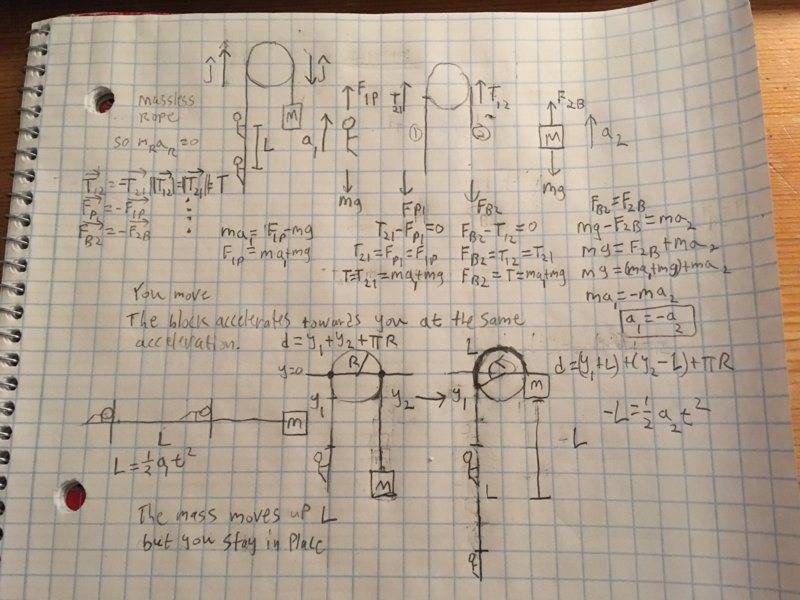 ĵ
ĵ
Massless
Rope
so m_R a_R = 0
M
L
a₁
F_1P
mg
T₂₁
T₁₂
①
②
F_P1
F_B2
F_2B
M
a₂
mg
T₁₂ = -T₂₁ |T₁₂| = |T₂₁| = T
F_P1 = -F_1P
F_B2 = -F_2B
ma₁ = F_1P - mg
F_1P = ma₁ + mg
T₂₁ - F_P1 = 0
T₂₁ = F_P1 = F_1P
T = T₂₁ = ma₁ + mg
F_B2 - T₁₂ = 0
F_B2 = T₁₂ = T₂₁
F_B2 = T = ma₁ + mg
F_B2 = F_2B
mg - F_2B = ma₂
mg = F_2B + ma₂
mg = (ma₁ + mg) + ma₂
ma₁ = -ma₂
a₁ = -a₂
You move
The block accelerates towards you at the same
acceleration.
d = y₁ + y₂ + πR
y=0
R
y₁
y₂
M
L
M
L = ½a₁t²
L
y₁
M
L
-L
d = (y₁ + L) + (y₂ - L) + πR
-L = ½a₂t²
The mass moves up L
but you stay in Place